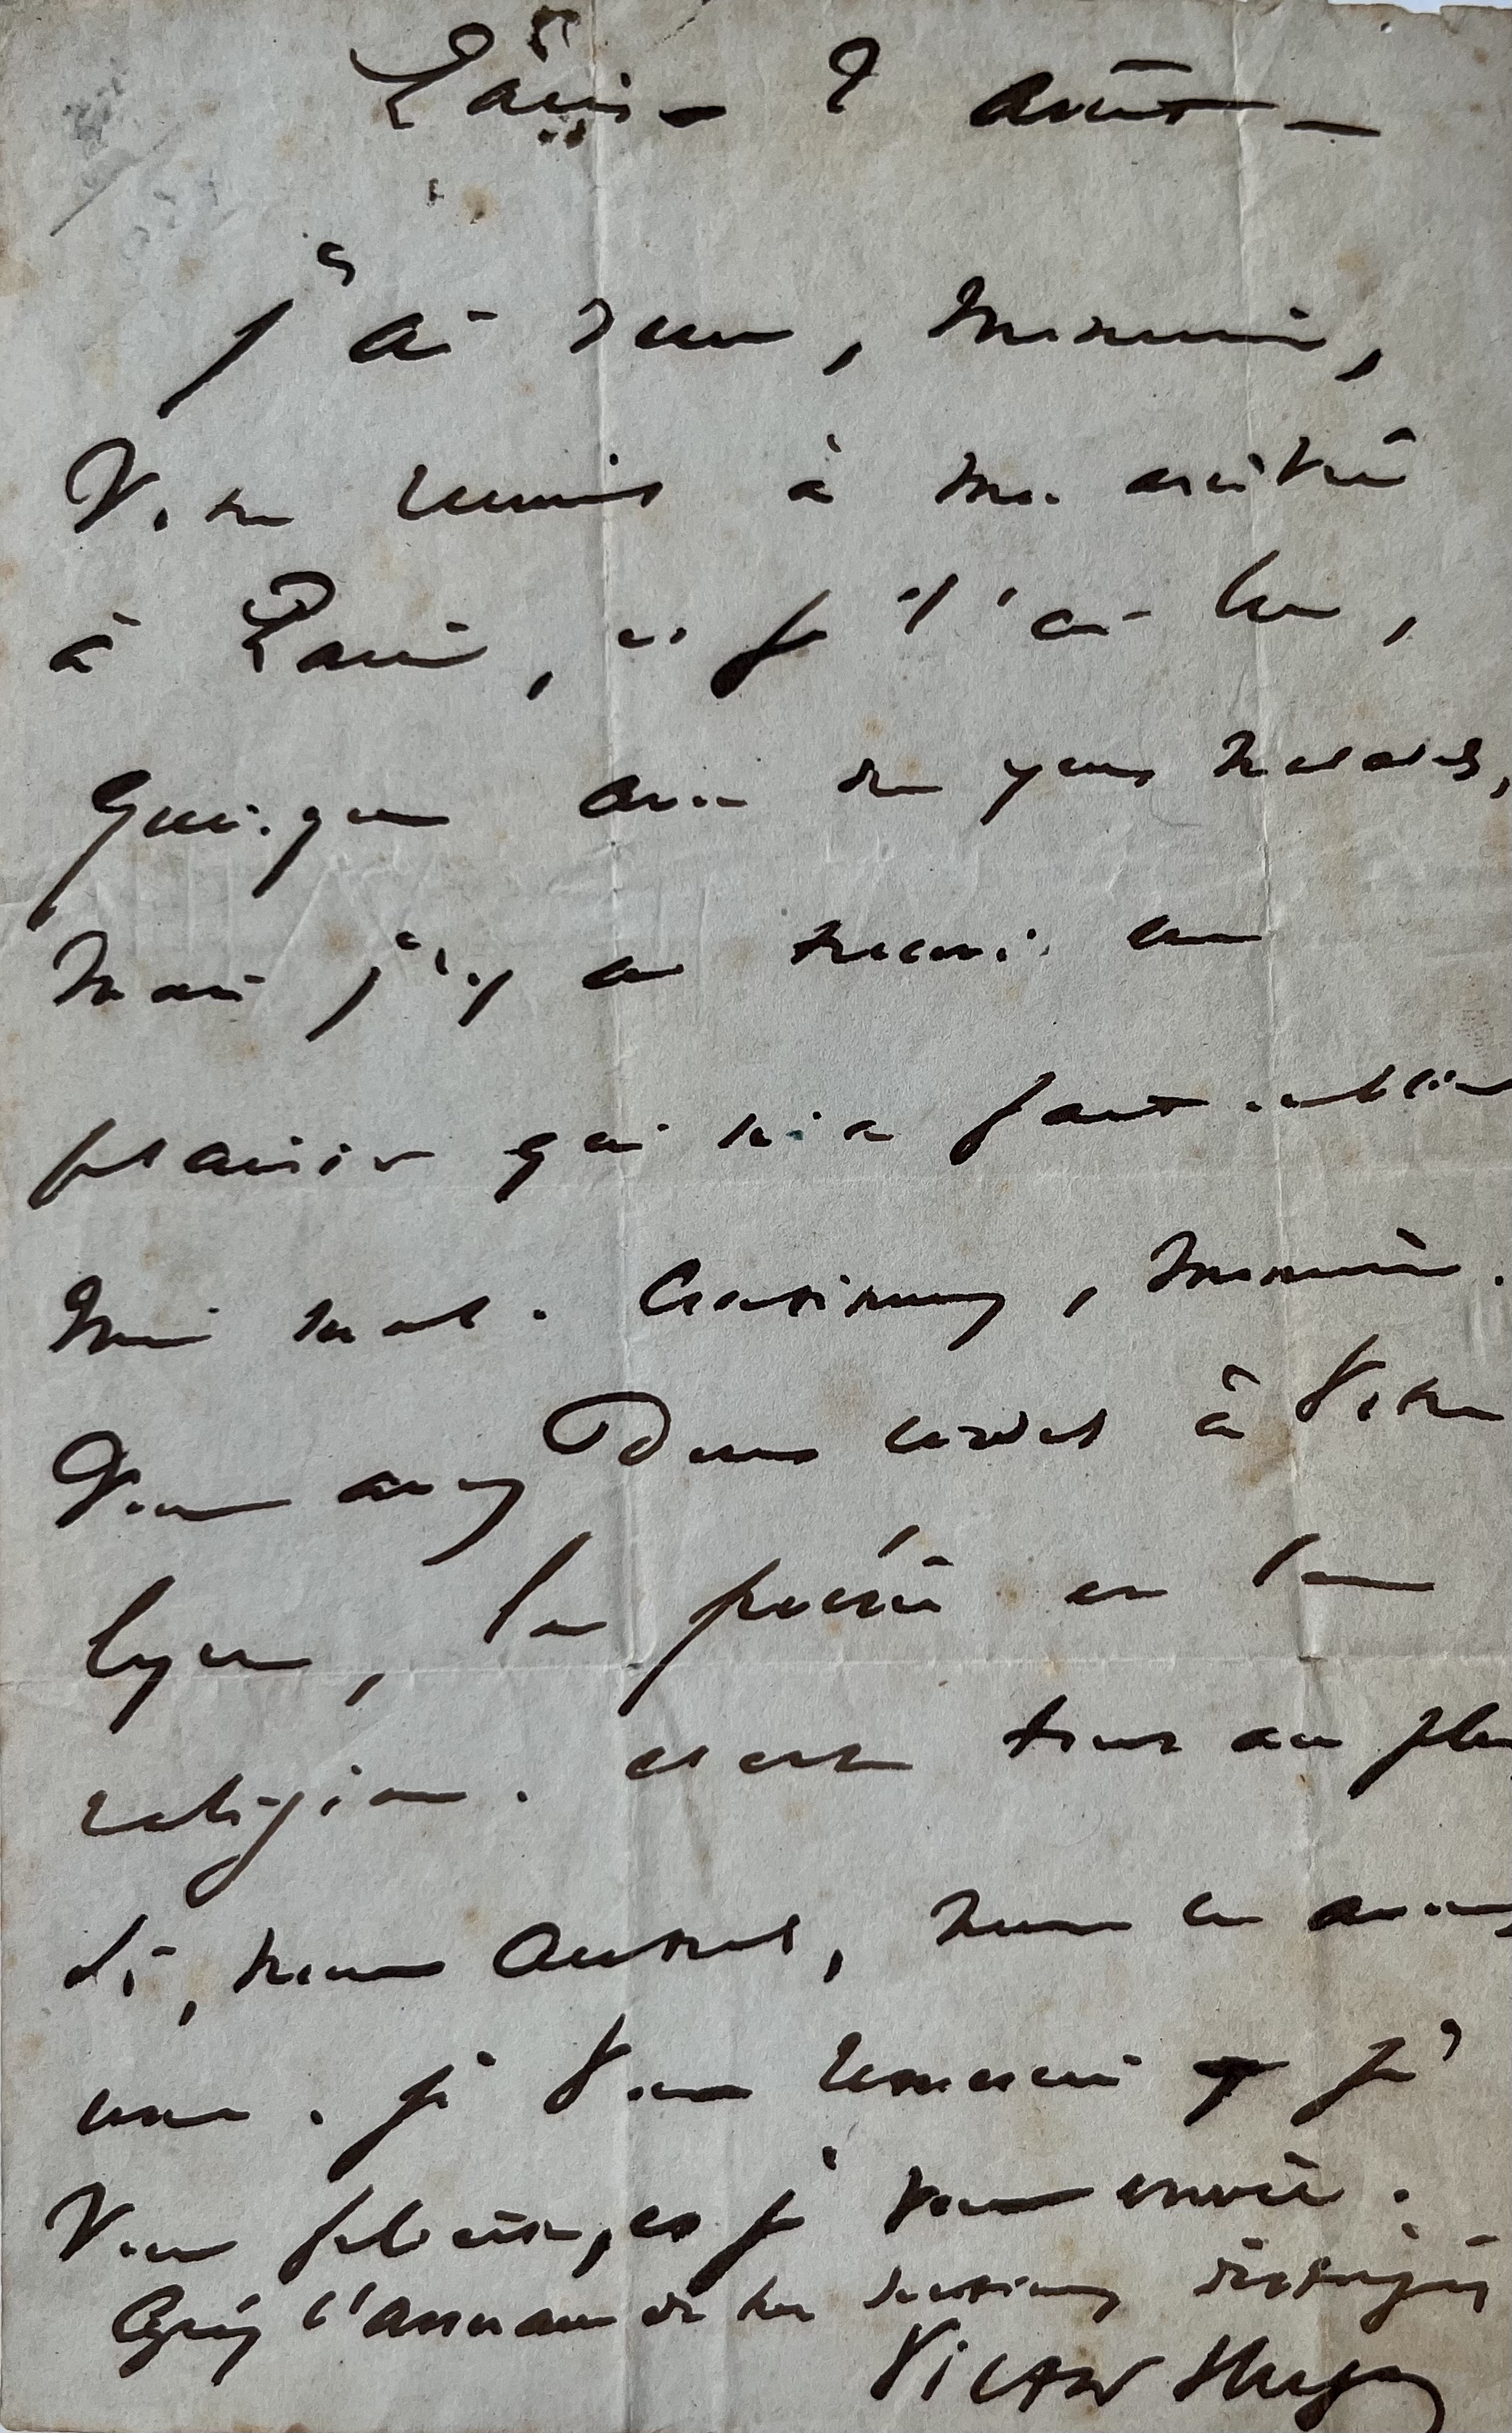 Paris - 2 août -
j'ai reçu, monsieur,
votre remis à mon arrivée
à Paris, et je l'ai lu,
quoique avec des yeux malades,
mais j'y ai trouvé un
plaisir qui m'a fait oublier
mon mal. Continuez, monsieur.
Vous avez deux cordes à votre
lyre, la poésie et la
religion. c'est tout au plus
si, nous autres, nous en avons
une. je vous remercie je
vous félicite, et je vous envie.
Agréez l'assurance de mes sentiments distingués
Victor Hugo